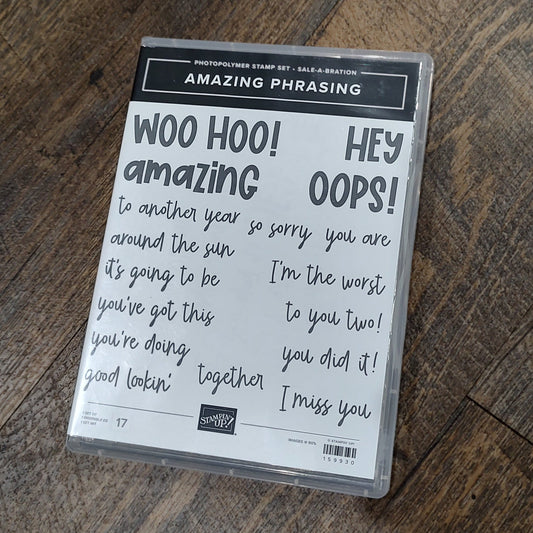 PHOTOPOLYMER STAMP SET • SALE-A-BRATION
AMAZING PHRASING
WOO HOO!
HEY
amazing
OOPS!
to another year
so sorry
you are
around the sun
it's going to be
I'm the worst
you've got this
to you two!
you're doing
you did it!
good lookin'
together
I miss you
17
STAMPIN' UP!
IMAGES @ 90%
© STAMPIN' UP!
159930